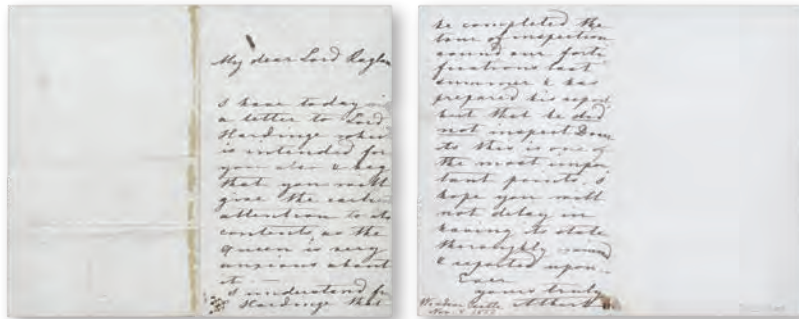 My dear Lord Raglan
I have today in
a letter to Lord
Hardinge which
is intended for
you also & beg
that you will
give the earliest
attention to its
contents as the
Queen is very
anxious about
it.
I understand fr
Hardinge that
he completed the
tour of inspection
round our forti
fications last
summer & has
prepared his report
but that he did
not inspect Dover
As this is one of
the most impor
tant points I
hope you will
not delay in
having its state
thoroughly
& reported upon.
Ever
yours truly
Albert
Windsor Castle
Nov. 4